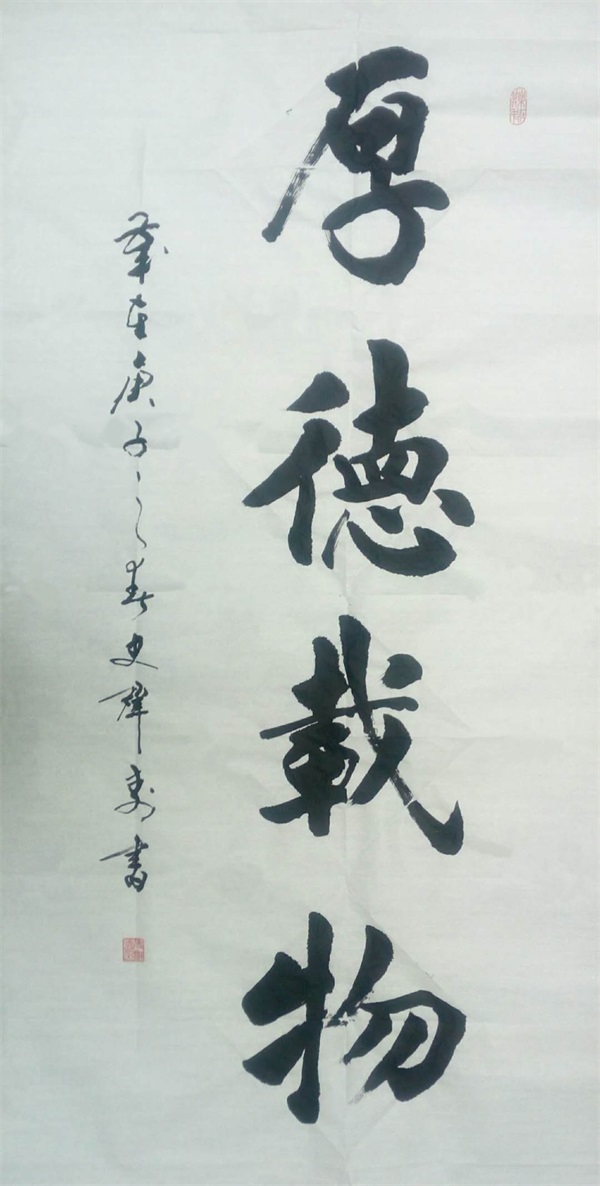 厚德載物
歲在庚子之春史輝書